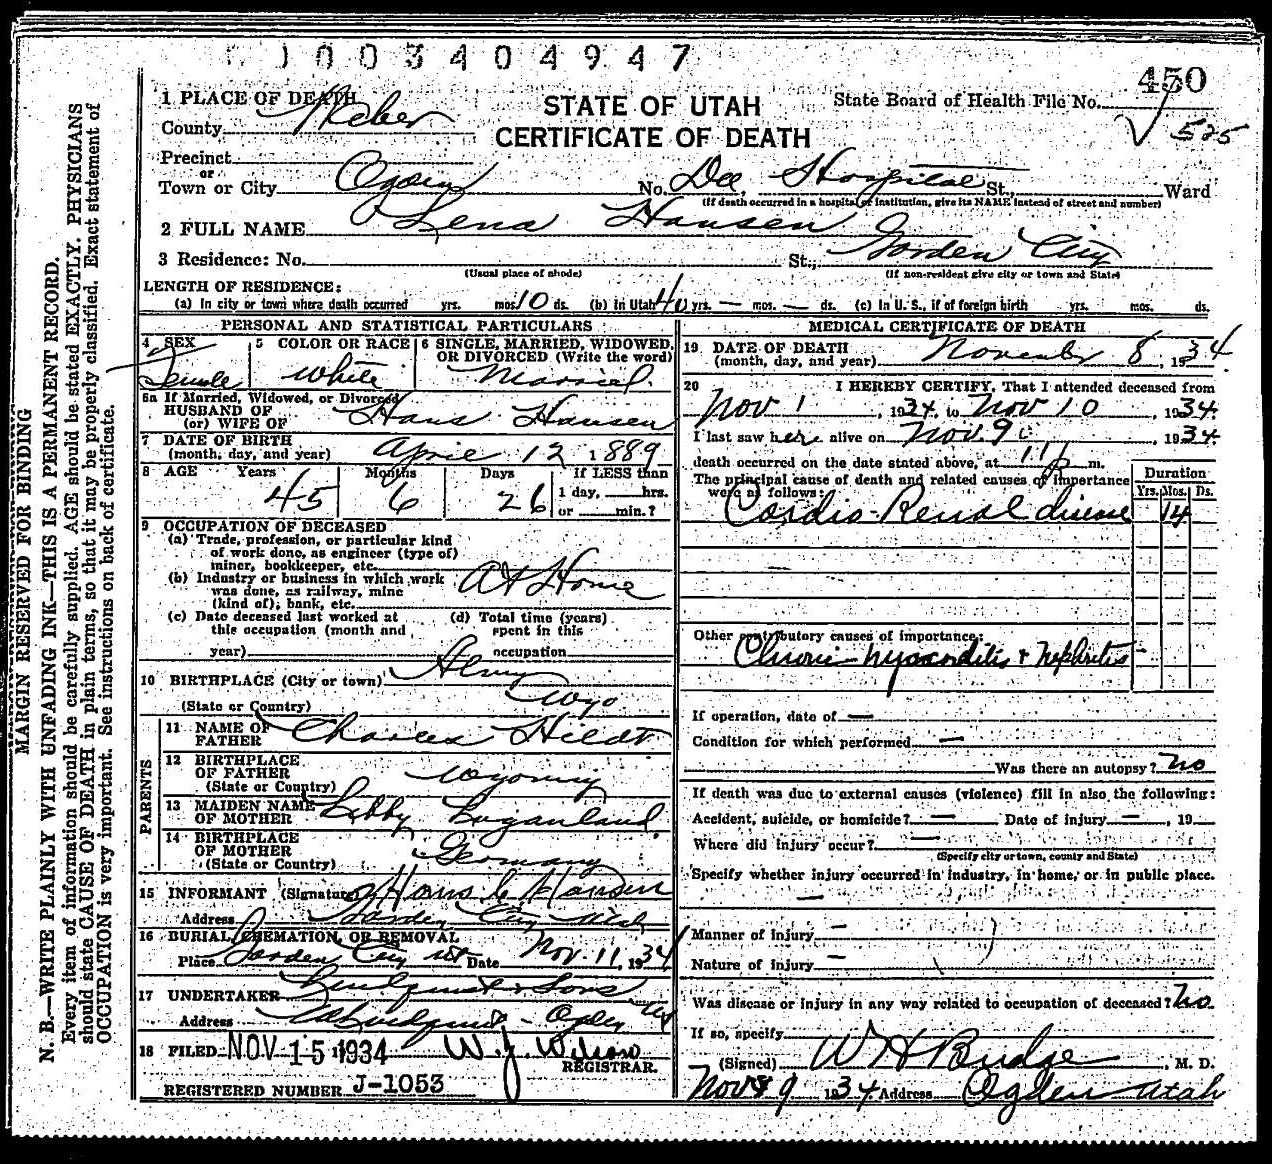 1003404947
450
STATE OF UTAH
CERTIFICATE OF DEATH
State Board of Health File No.
525
1 PLACE OF DEATH
County Weber
Precinct
or
Town or City Ogden No. Dee, Hospital St., Ward
(If death occurred in a hospital or institution, give its NAME instead of street and number)
2 FULL NAME Lena Hansen
3 Residence: No. St., Garden City
(Usual place of abode) (If non-resident give city or town and State)
LENGTH OF RESIDENCE:
(a) In city or town where death occurred yrs. mos. 10 ds. (b) in Utah 40 yrs. — mos. — ds. (c) In U. S., if of foreign birth yrs. mos. ds.
PERSONAL AND STATISTICAL PARTICULARS
4 SEX
Female
5 COLOR OR RACE
White
6 SINGLE, MARRIED, WIDOWED, OR DIVORCED (Write the word)
Married.
6a If Married, Widowed, or Divorced
HUSBAND OF
(or) WIFE OF Hans Hansen
7 DATE OF BIRTH
(month, day, and year) April 12 1889
8 AGE Years Months Days If LESS than
45 6 26 1 day, hrs.
or min.?
9 OCCUPATION OF DECEASED
(a) Trade, profession, or particular kind
of work done, as engineer (type of)
miner, bookkeeper, etc.
(b) Industry or business in which work
was done, as railway, mine
(kind of); bank, etc.
At Home
(c) Date deceased last worked at
this occupation (month and
year)
(d) Total time (years)
spent in this
occupation
10 BIRTHPLACE (City or town)
(State or Country) Wyo
PARENTS
11 NAME OF
FATHER Charles Hildt
12 BIRTHPLACE
OF FATHER
(State or Country) Wyoming
13 MAIDEN NAME
OF MOTHER Libby
14 BIRTHPLACE
OF MOTHER
(State or Country) Germany
15 INFORMANT (Signature) Hans C Hansen
Address Garden City Utah
16 BURIAL, CREMATION, OR REMOVAL
Place Garden City Ut Date Nov. 11, 1934
17 UNDERTAKER Lindquist & Sons
Address Ogden Ut
18 FILED NOV 15 1934 W. J. Wilson
REGISTRAR.
REGISTERED NUMBER J-1053
MEDICAL CERTIFICATE OF DEATH
19 DATE OF DEATH
(month, day, and year) November 8, 1934
20 I HEREBY CERTIFY, That I attended deceased from
Nov 1, 1934, to Nov 10, 1934.
I last saw her alive on Nov 9, 1934
death occurred on the date stated above, at 11 p m.
The principal cause of death and related causes of importance
were as follows:
Duration
Yrs. Mos. Ds.
Cardio-Renal disease 14
Other contributory causes of importance:
Chronic Myocarditis & Nephritis
If operation, date of —
Condition for which performed —
Was there an autopsy? No
If death was due to external causes (violence) fill in also the following:
Accident, suicide, or homicide? — Date of injury —, 19
Where did injury occur? —
(Specify city or town, county and State)
Specify whether injury occurred in industry, in home, or in public place.
—
Manner of injury —
Nature of injury —
Was disease or injury in any way related to occupation of deceased? No.
If so, specify
(Signed) W H Budge, M. D.
Nov 9 1934 Address Ogden Utah
MARGIN RESERVED FOR BINDING
N. B.—WRITE PLAINLY WITH UNFADING INK—THIS IS A PERMANENT RECORD.
Every item of information should be carefully supplied. AGE should be stated EXACTLY. PHYSICIANS
should state CAUSE OF DEATH in plain terms, so that it may be properly classified. Exact statement of
OCCUPATION is very important. See instructions on back of certificate.